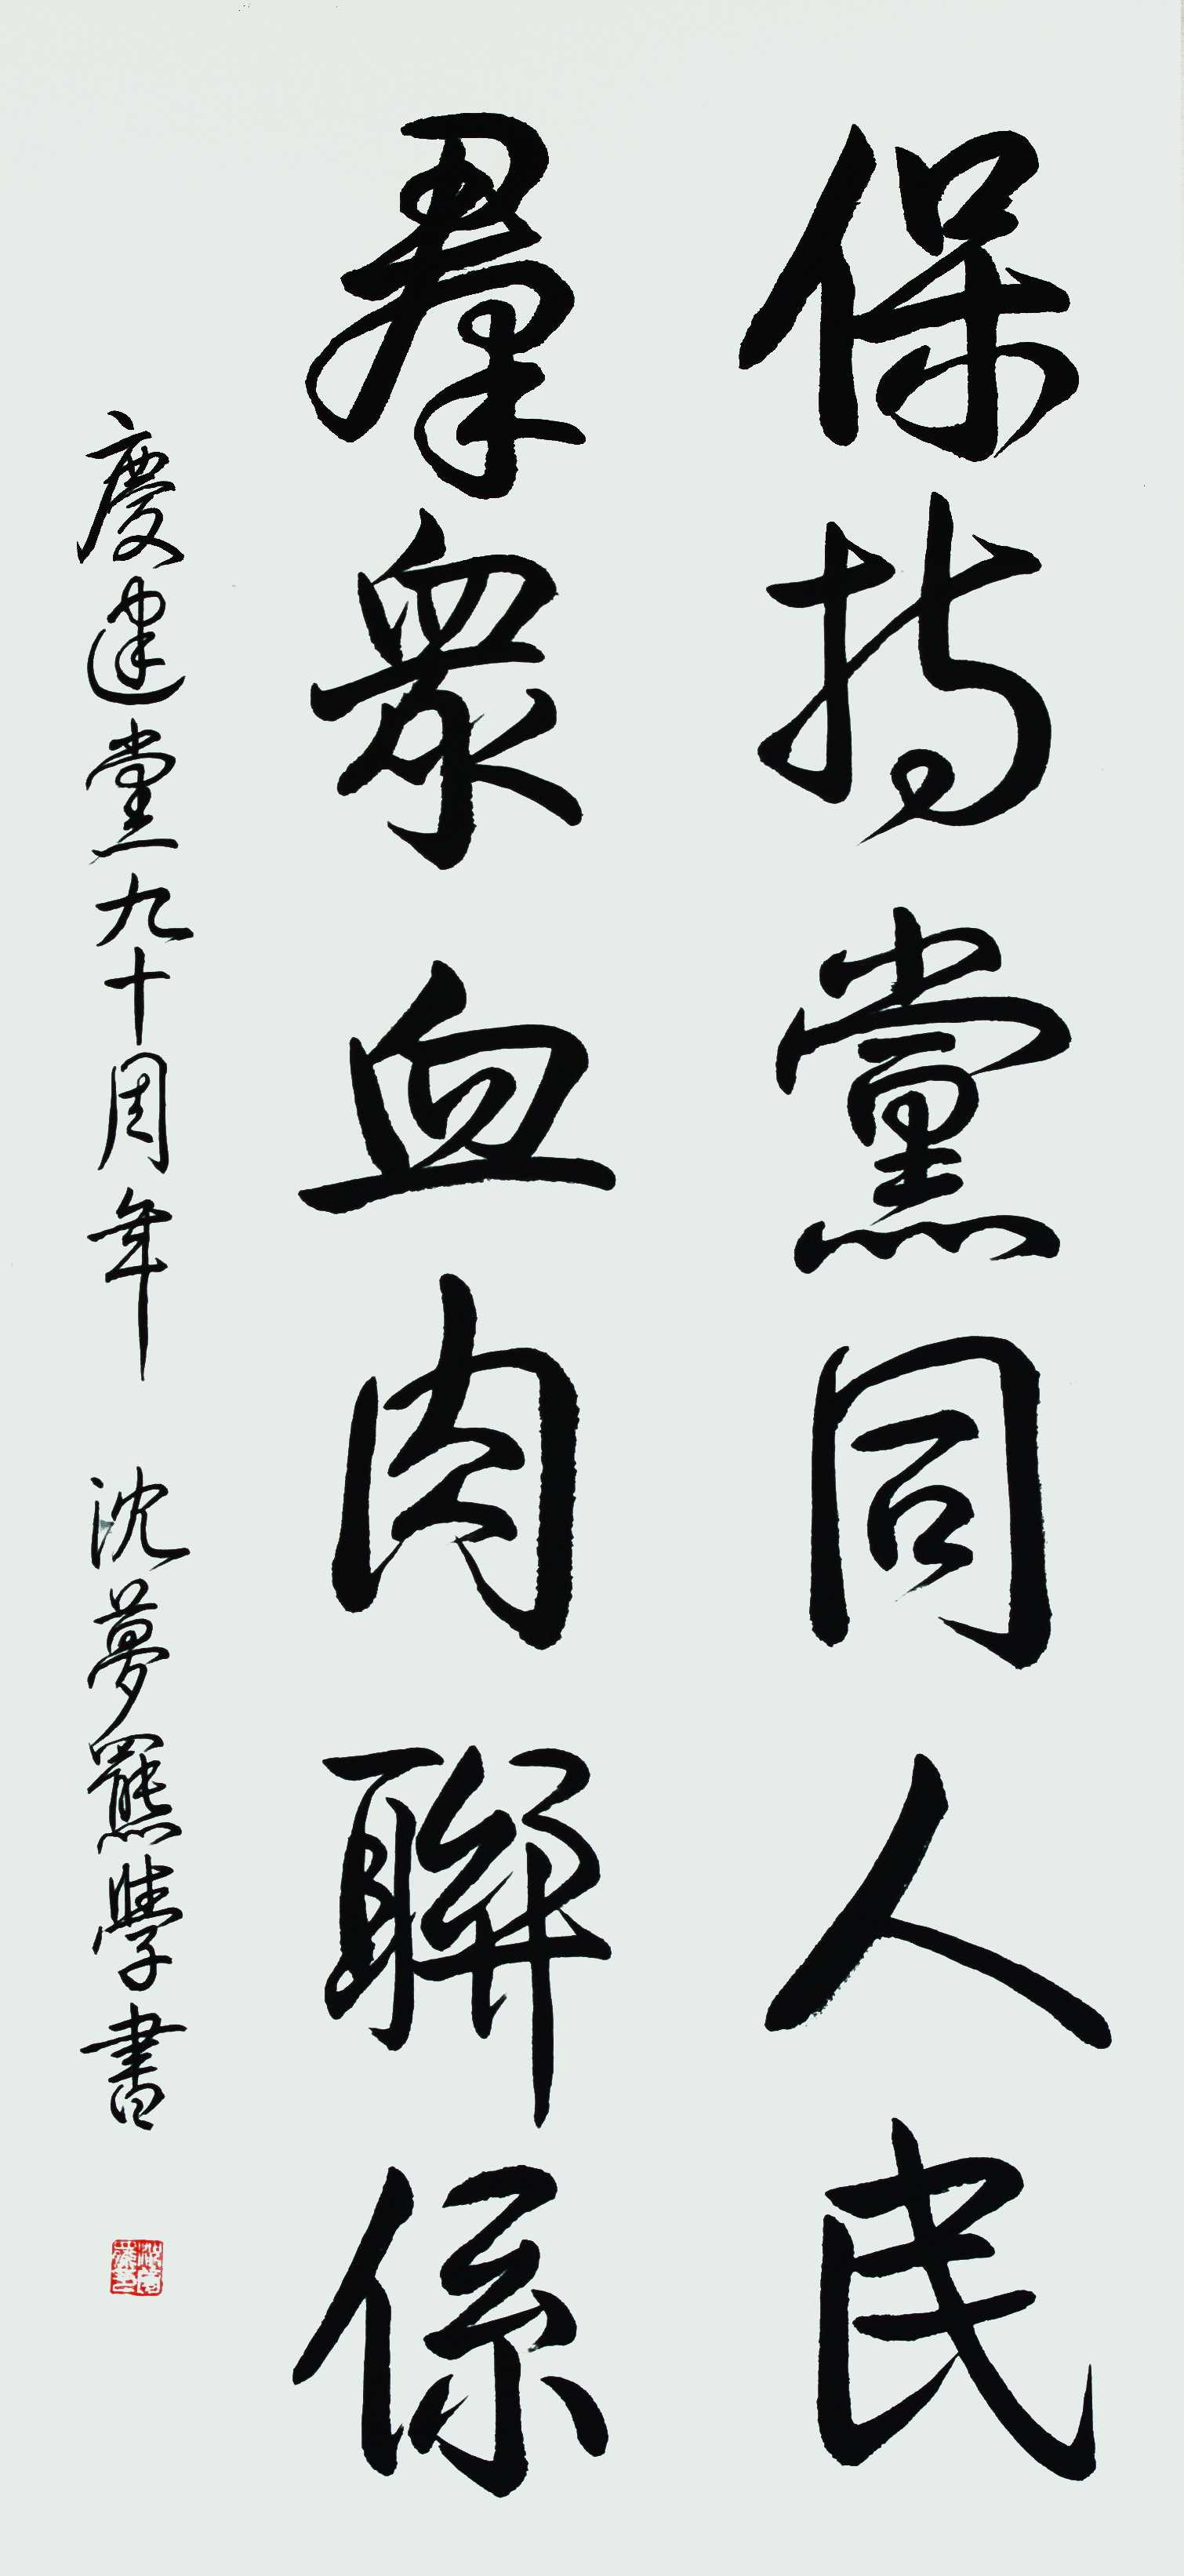 保持黨同人民
羣眾血肉聯係
慶建黨九十周年 沈夢羆學書